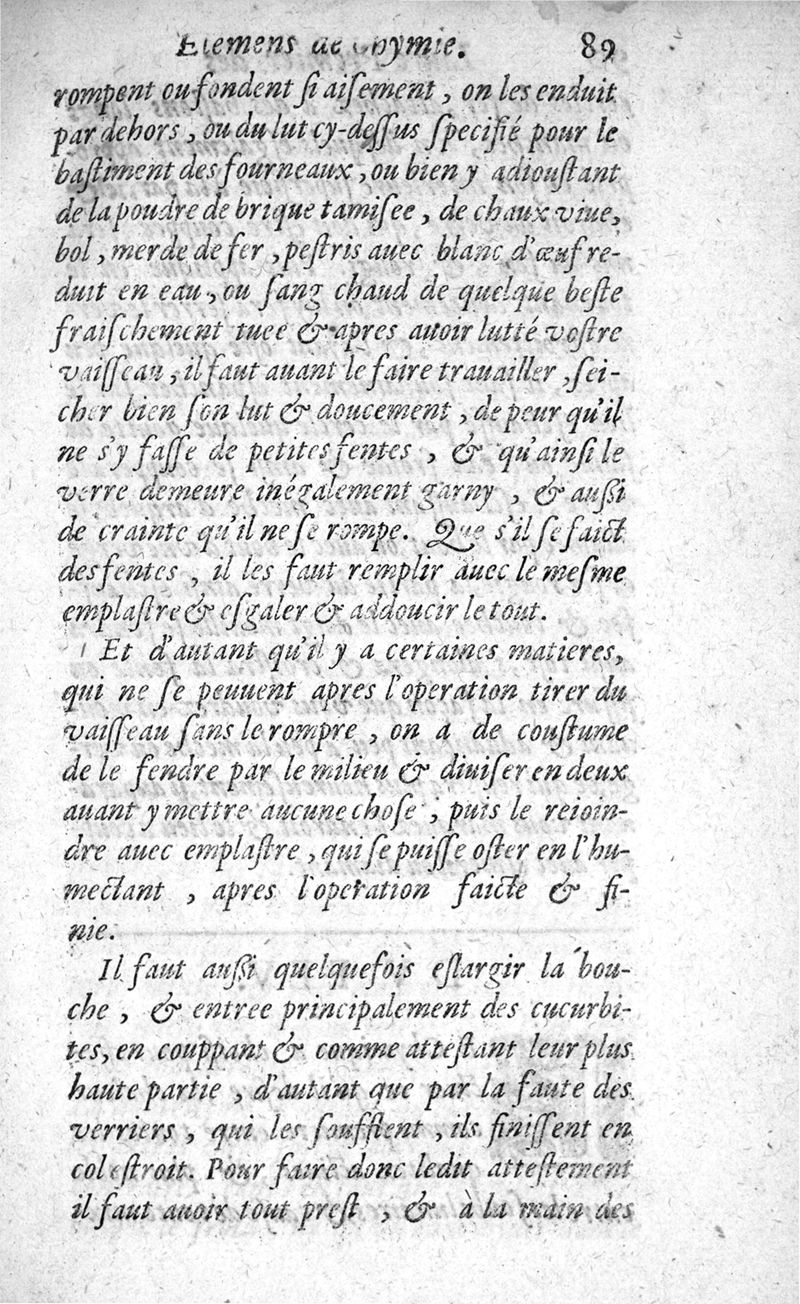 Elemens de Chymie. 89
rompent ou fondent ſi aiſement, on les enduit
par dehors, ou du lut cy-deſſus ſpecifié pour le
baſtiment des fourneaux, ou bien y adiouſtant
de la poudre de brique tamiſee, de chaux viue,
bol, merde de fer, peſtris auec blanc d'œuf re-
duit en eau, ou ſang chaud de quelque beſte
fraiſchement tuee & apres auoir lutté voſtre
vaiſſeau, il faut auant le faire trauailler, ſei-
cher bien ſon lut & doucement, de peur qu'il
ne s'y faſſe de petites fentes, & qu'ainſi le
verre demeure inégalement garny, & auſſi
de crainte qu'il ne ſe rompe. Que s'il ſe faict
des fentes, il les faut remplir auec le meſme
emplaſtre & eſgaler & addoucir le tout.
Et d'autant qu'il y a certaines matieres,
qui ne ſe peuuent apres l'operation tirer du
vaiſſeau ſans le rompre, on a de couſtume
de le fendre par le milieu & diuiſer en deux
auant y mettre aucune choſe, puis le reioin-
dre auec emplaſtre, qui ſe puiſſe oſter en l'hu-
mectant, apres l'operation faicte & fi-
nie.
Il faut auſſi quelquefois eſlargir la bou-
che, & entree principalement des cucurbi-
tes, en couppant & comme atteſtant leur plus
haute partie, d'autant que par la faute des
verriers, qui les ſoufflent, ils finiſſent en
col eſtroit. Pour faire donc ledit atteſtement
il faut auoir tout preſt, & à la main des